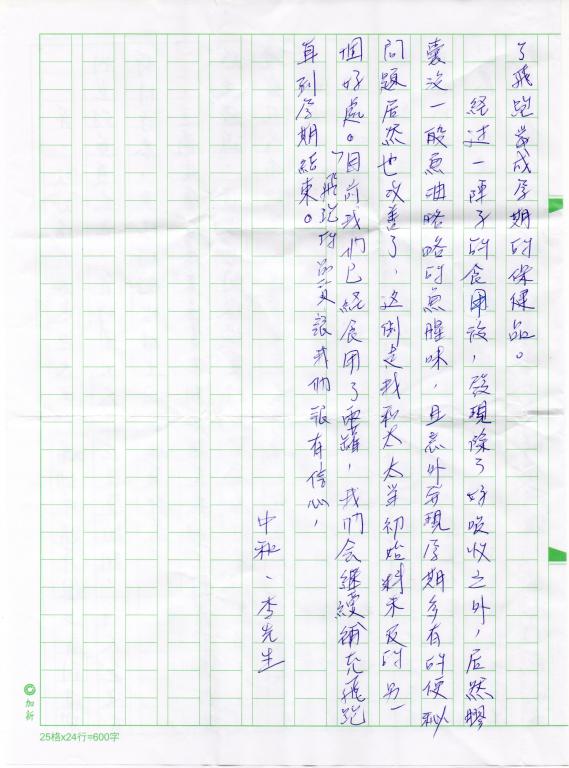 了飛跑當成孕期的保健品。
經过一陣子的食用後，發現除了好吸收之外，居然膠
囊次一般魚油略略的魚腥味，且意外發現孕期多有的便秘
問題居然也改善了，这倒是我和太太當初始料未及的另一
個好處。目前我們已經食用了兩罐，我們会継續補充飛跑
直到孕期結束。
飛跑的品質讓我們很有信心，
中和、李先生
加新
25格x24行=600字